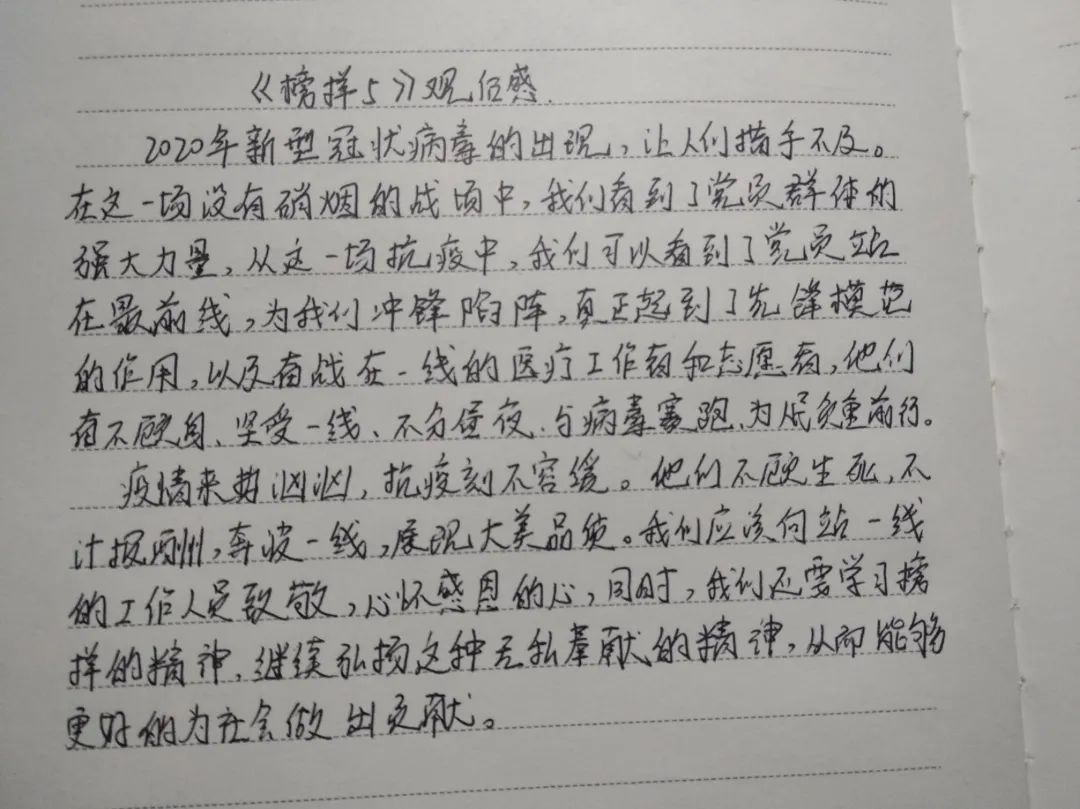 《榜样5》观后感.
2020年新型冠状病毒的出现，让人们措手不及。
在这一场没有硝烟的战场中，我们看到了党员群体的
强大力量，从这一场抗疫中，我们可以看到了党员站
在最前线，为我们冲锋陷阵，真正起到了先锋模范
的作用，以及奋战在一线的医疗工作者和志愿者，他们
奋不顾身、坚受一线、不分昼夜、与病毒赛跑、为民负重前行。
疫情来势汹汹，抗疫刻不容缓。他们不顾生死，不
计报酬，奔波一线，展现大美品质。我们应该向站一线
的工作人员致敬，心怀感恩的心，同时，我们还要学习榜
样的精神，继续弘扬这种无私奉献的精神，从而能够
更好的为社会做出贡献。